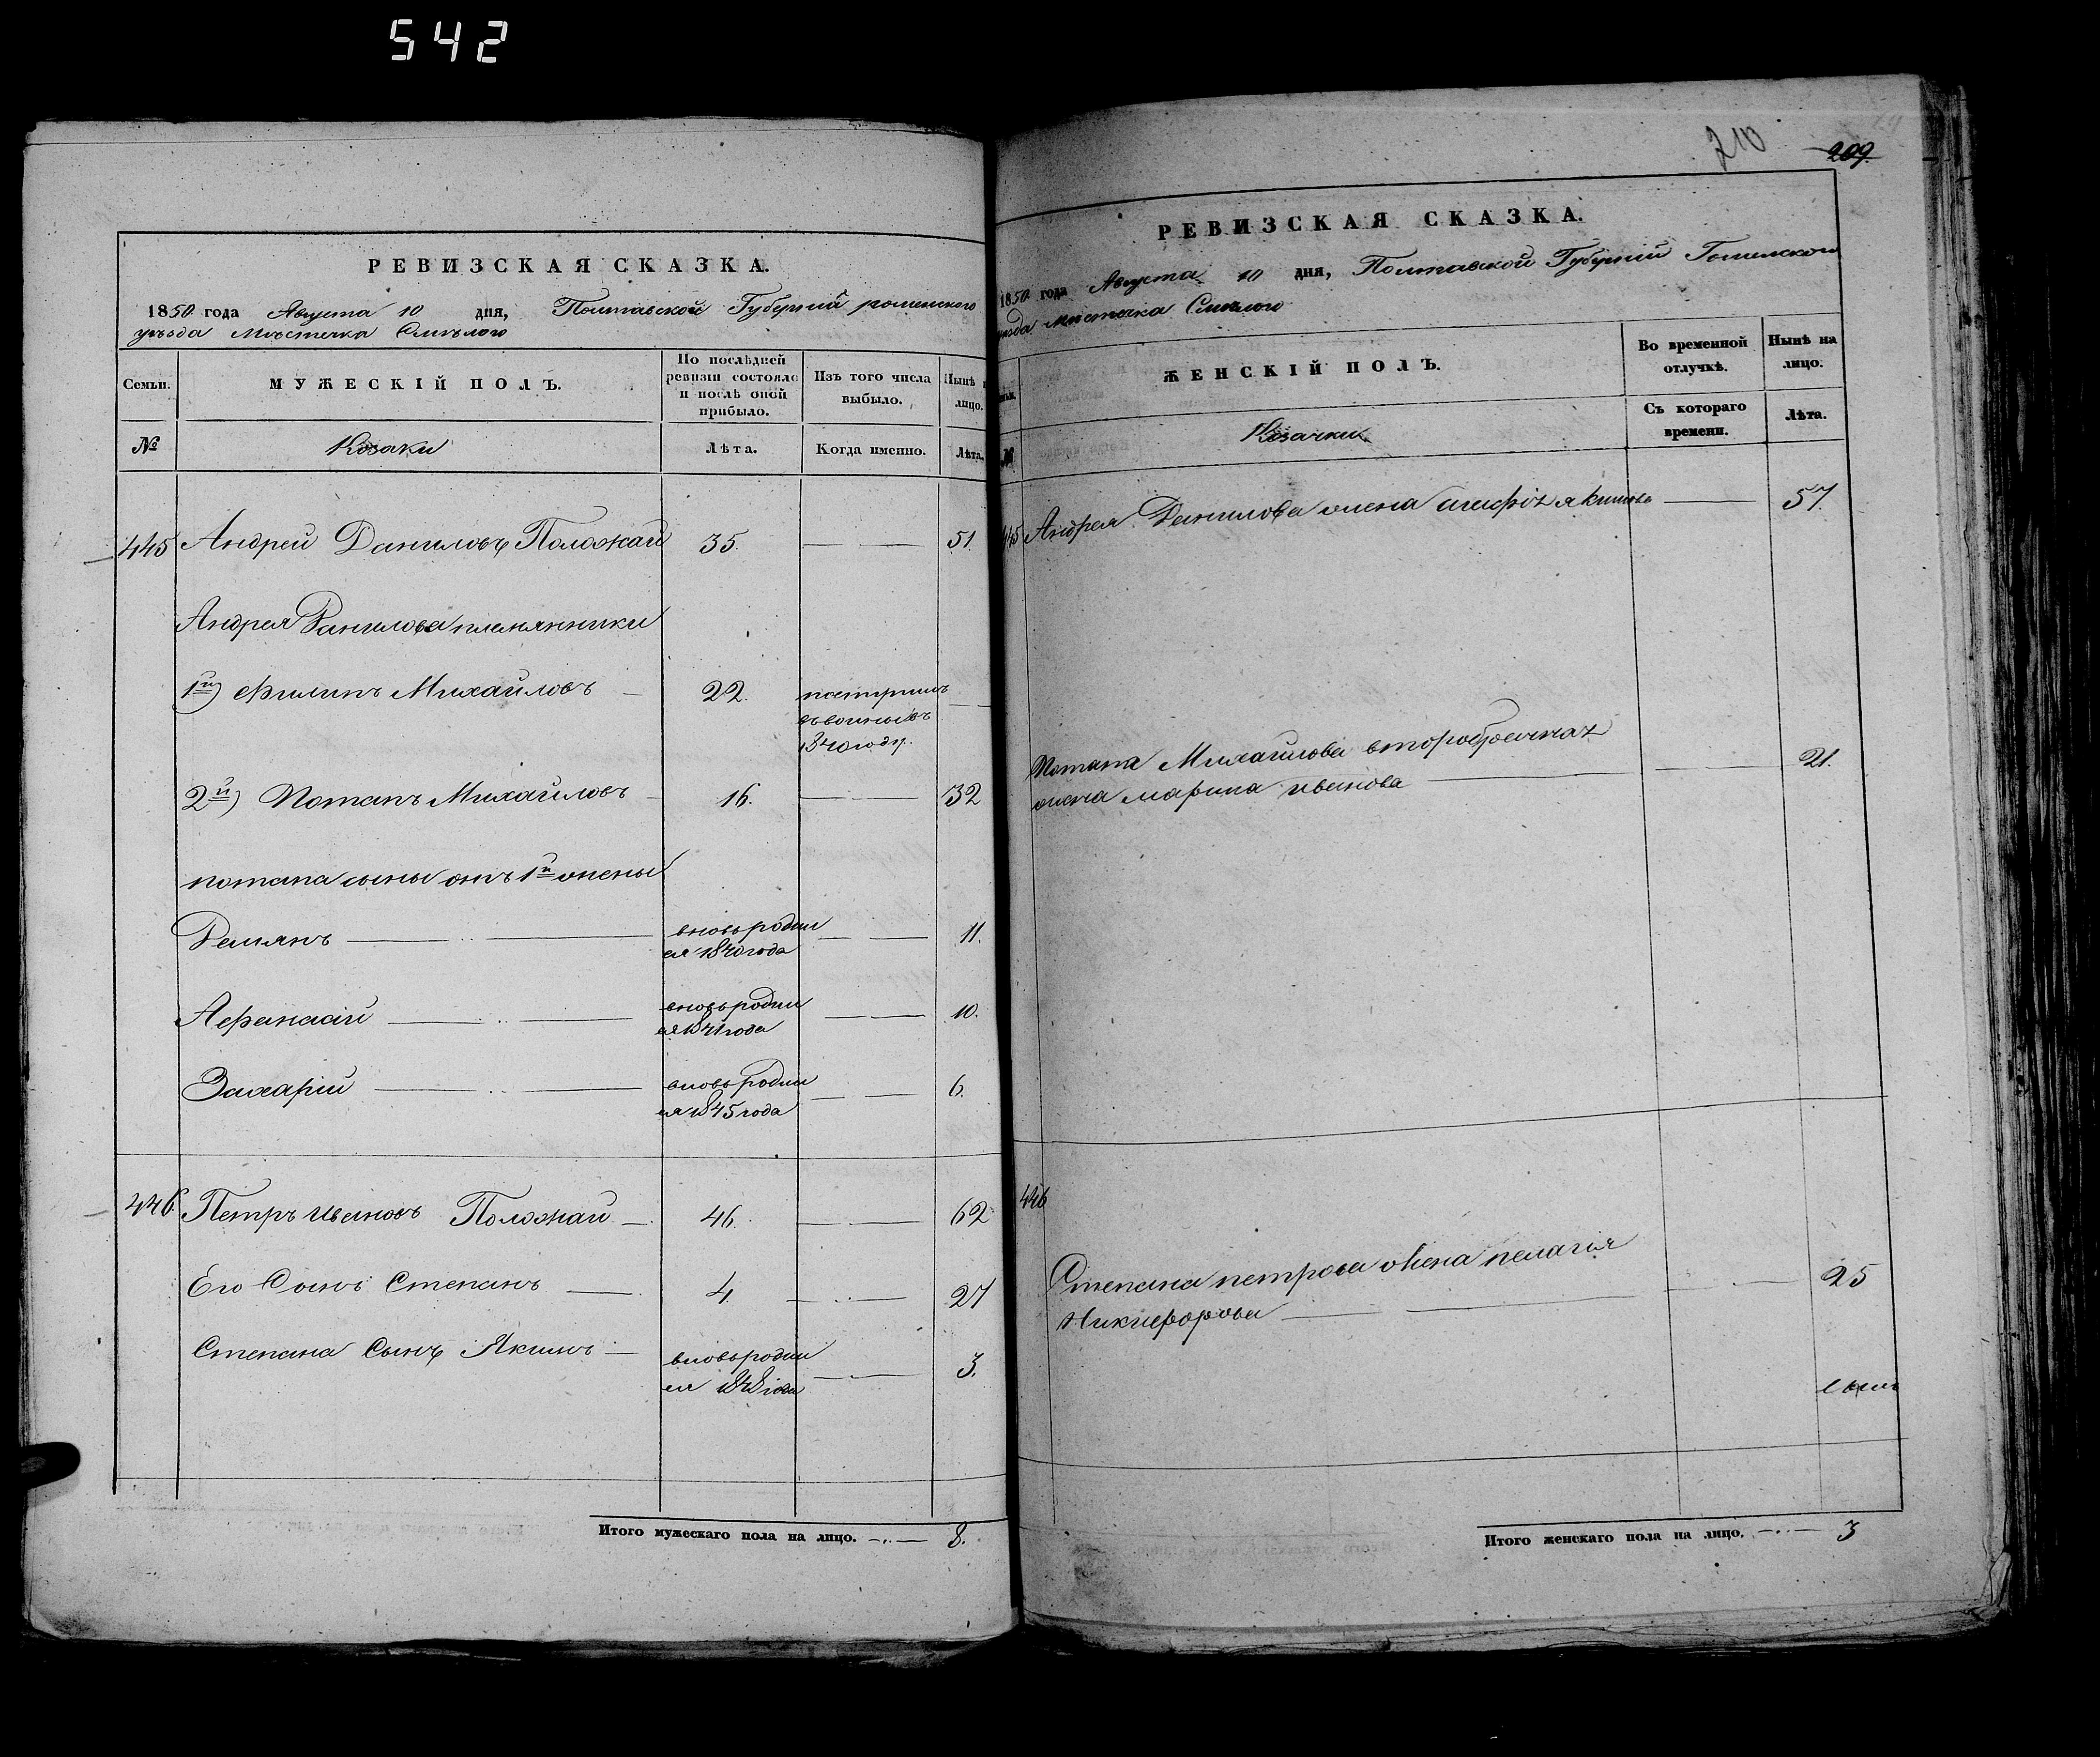 542
РЕВИЗСКАЯ СКАЗКА.
1850 года Августа 10 дня, Полтавской Губерніи роменского
уѣзда Мѣстечка Смѣлого
Семьи.
МУЖЕСКІЙ ПОЛЪ.
По послѣдней
ревизіи состояло
и послѣ оной
прибыло.
Изъ того числа
выбыло.
Нынѣ
лицо.
№
Козаки
Лѣта.
Когда именно.
Лѣта.
445 Андрей Даниловъ Положай 35. 51.
Андрея Данилова племянники
1й) Филипъ Михайловъ 22.
1840 году.
2й) Потапъ Михайловъ 16. 32
потапа сыны отъ 1й жены
Демянъ вновь родил
ся 1840 года 11.
Афанасій вновь родил
ся 1841 года 10.
Захарій вновь родил
ся 1845 года 6.
446 Петръ Ивановъ Положай 46. 62
Его Сынъ Степанъ 4. 27
Степана Сынъ Якимъ вновь родил
ся 1848 года 3.
Итого мужескаго пола на лицо. 8.
210 209.
РЕВИЗСКАЯ СКАЗКА.
1850 года Августа 10 дня, Полтавской Губерніи Роменского
уѣзда мѣстечка Смѣлого
ЖЕНСКІЙ ПОЛЪ.
Во временной
отлучкѣ.
Нынѣ на
лицо.
№
Козачки
Съ котораго
времени.
Лѣта.
445 Андрея Данилова жена якимова 57.
Потапа Михайлова второбрачная
жена марина иванова 21.
446
Степана петрова жена пелагія
Никифорова 25
Итого женскаго пола на лицо. 3